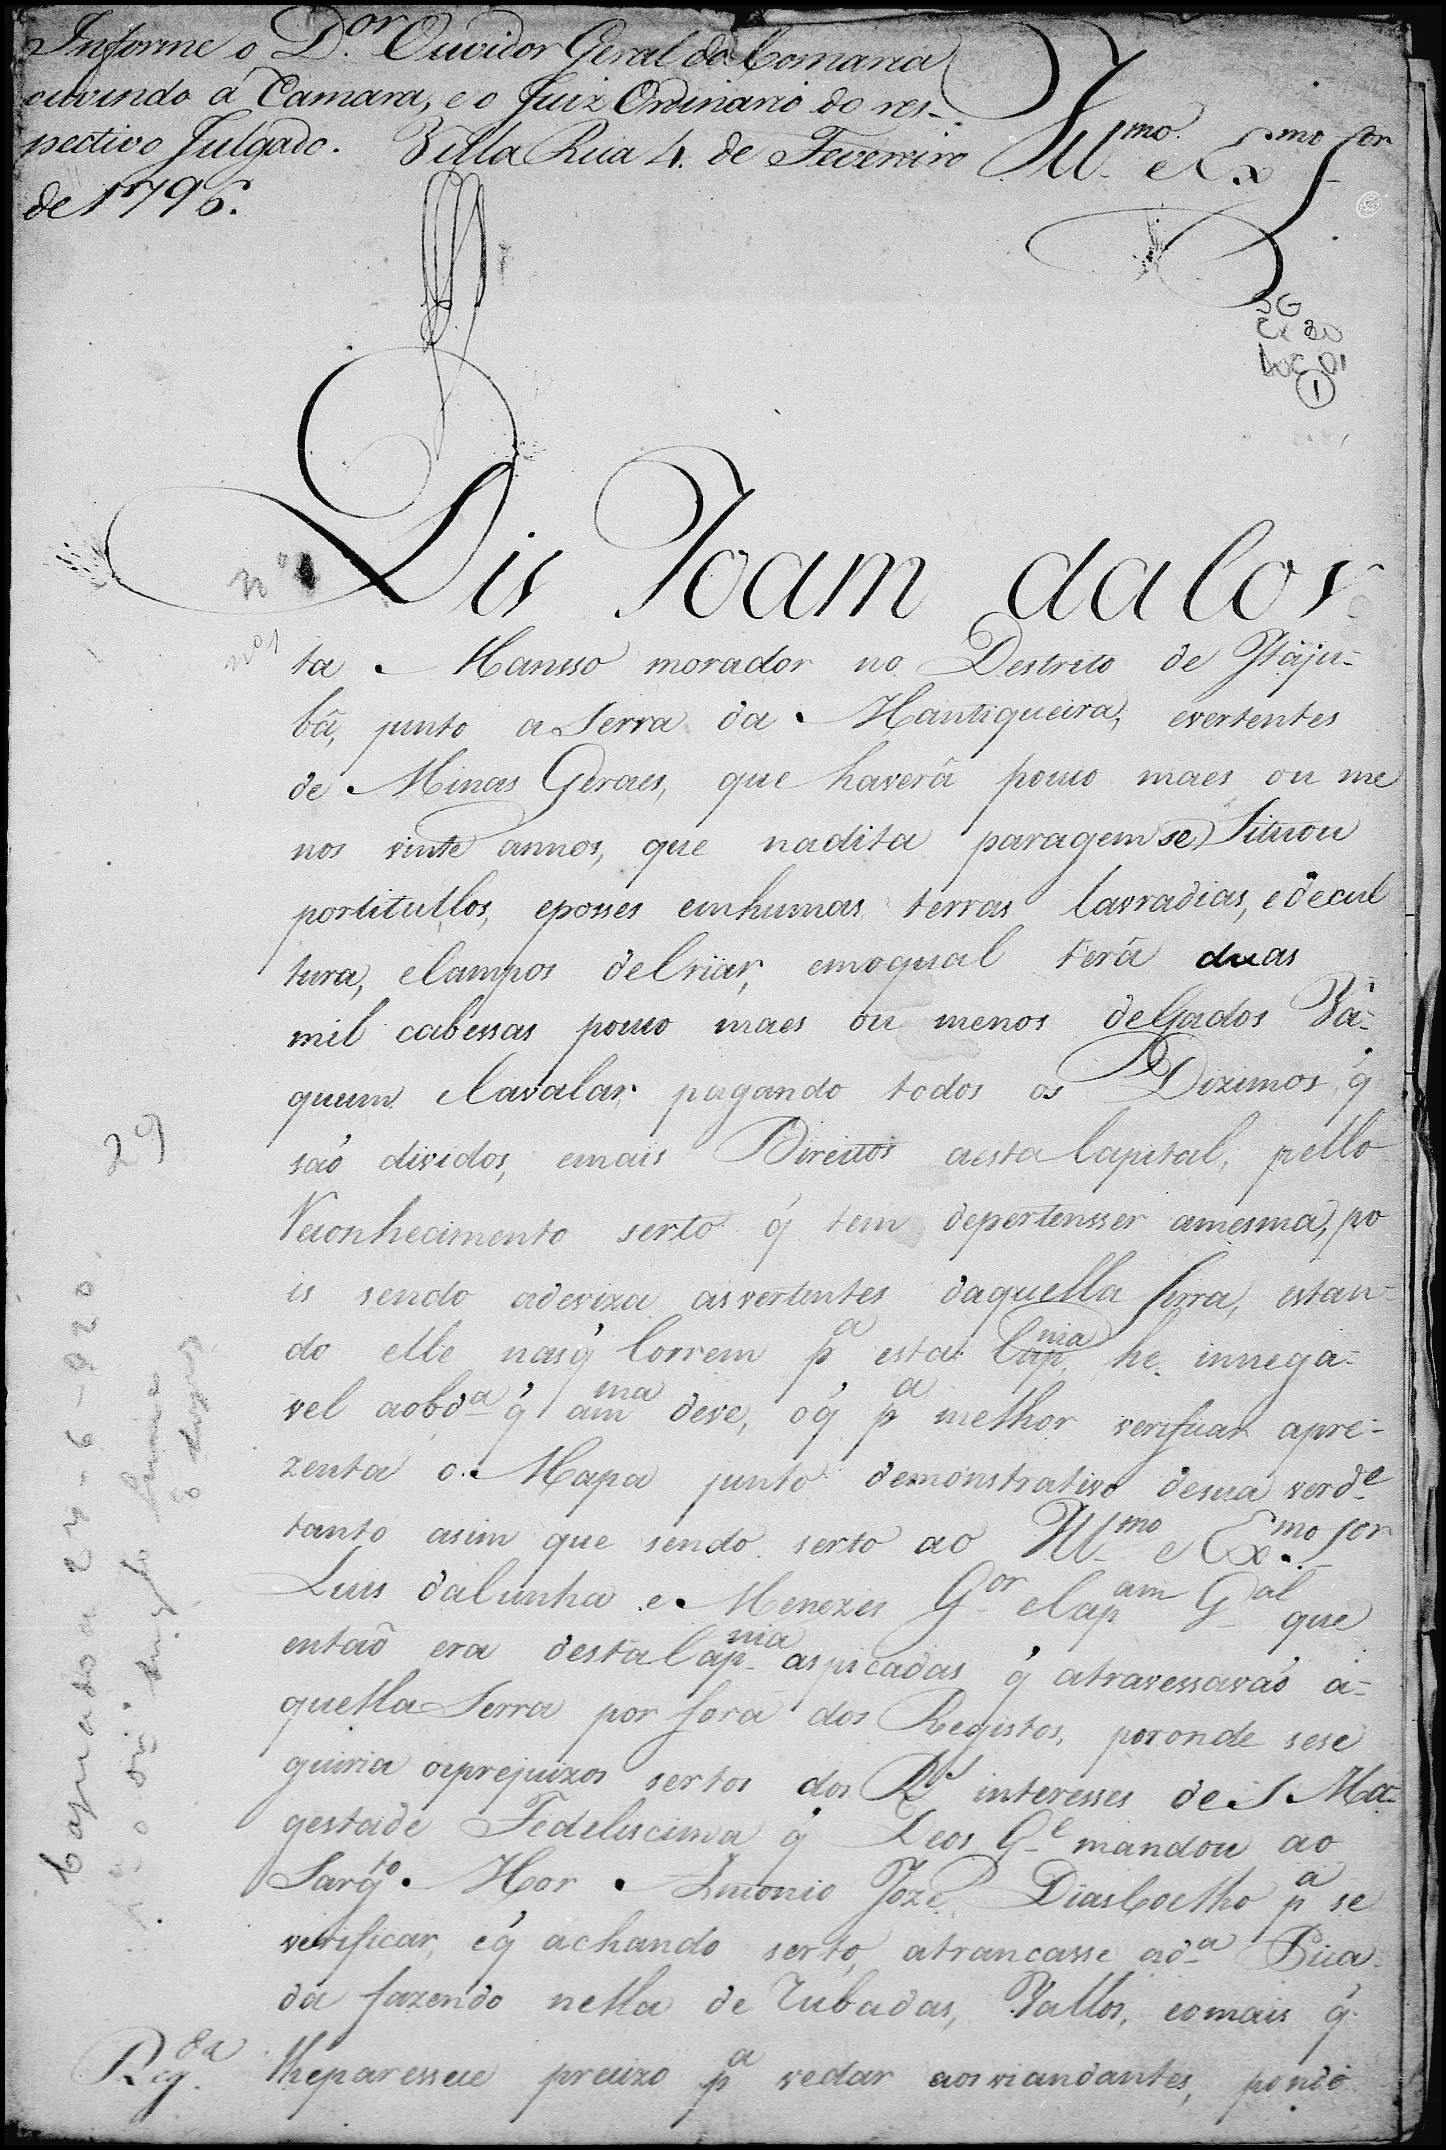 Informe o D.or Ouvidor Geral da Comarca
ouvindo a Camara, e o Juiz Ordinario do res-
pectivo Julgado. Villa Rica 4. de Fevereiro
de 1796.
Ill.mo e Ex.mo Sor
SG
Cx 20
Doc 01
1
nº 1
Dis Joam da Cos-
nº 1
ta Mansso morador no Destrito de Itaju-
bâ, junto a Serra da Mantiqueira, evertentes
de Minas Geraes, que haverâ pouco maes ou me
nos vinte annos, que nadita paragem se Situou
portitullos, eposses emhumas terras lavradias, edecul
tura, eCampos deCriar, emoqual terâ duas
mil cabessas pouco maes ou menos deGados Va-
quum eCavalar, pagando todos os Dizimos q̃
são dividos, emais Direitos aesta Capital, pello
Reconhecimento serto q̃ tem depertensser amesma, po
is sendo adeviza asvertentes daquella Serra, estan-
do elle nasq̃ Correm p.a esta Cap.nia he innega-
vel aobd.a q̃ am.ma deve, oq̃ p.a melhor verificar apre-
zenta o Mapa junto demonstrativo desua verd.e
tanto asim que sendo serto ao Ill.mo e Ex.mo Sor
Luis daCunha e Menezes G.or eCap.am G.al que
então era desta Cap.nia aspicadas q̃ atravessavão a-
quella Serra por fora dos Registos, poronde sese
guiria oprejuizos sertos dos R.s interesses de S Ma-
gestade Fedeliscima q̃ Deos G.e mandou ao
Sarg.to Mor Antonio Joze Dias Coelho p.a se
verificar, eq̃ achando serto, atrancasse ad.a Pica-
da fazendo nella de Rubadas, Vallos, eomais q̃
lheparessece precizo p.a vedar aos viandantes, pondo
Reg.da
29
Copiado a 23-6-920.